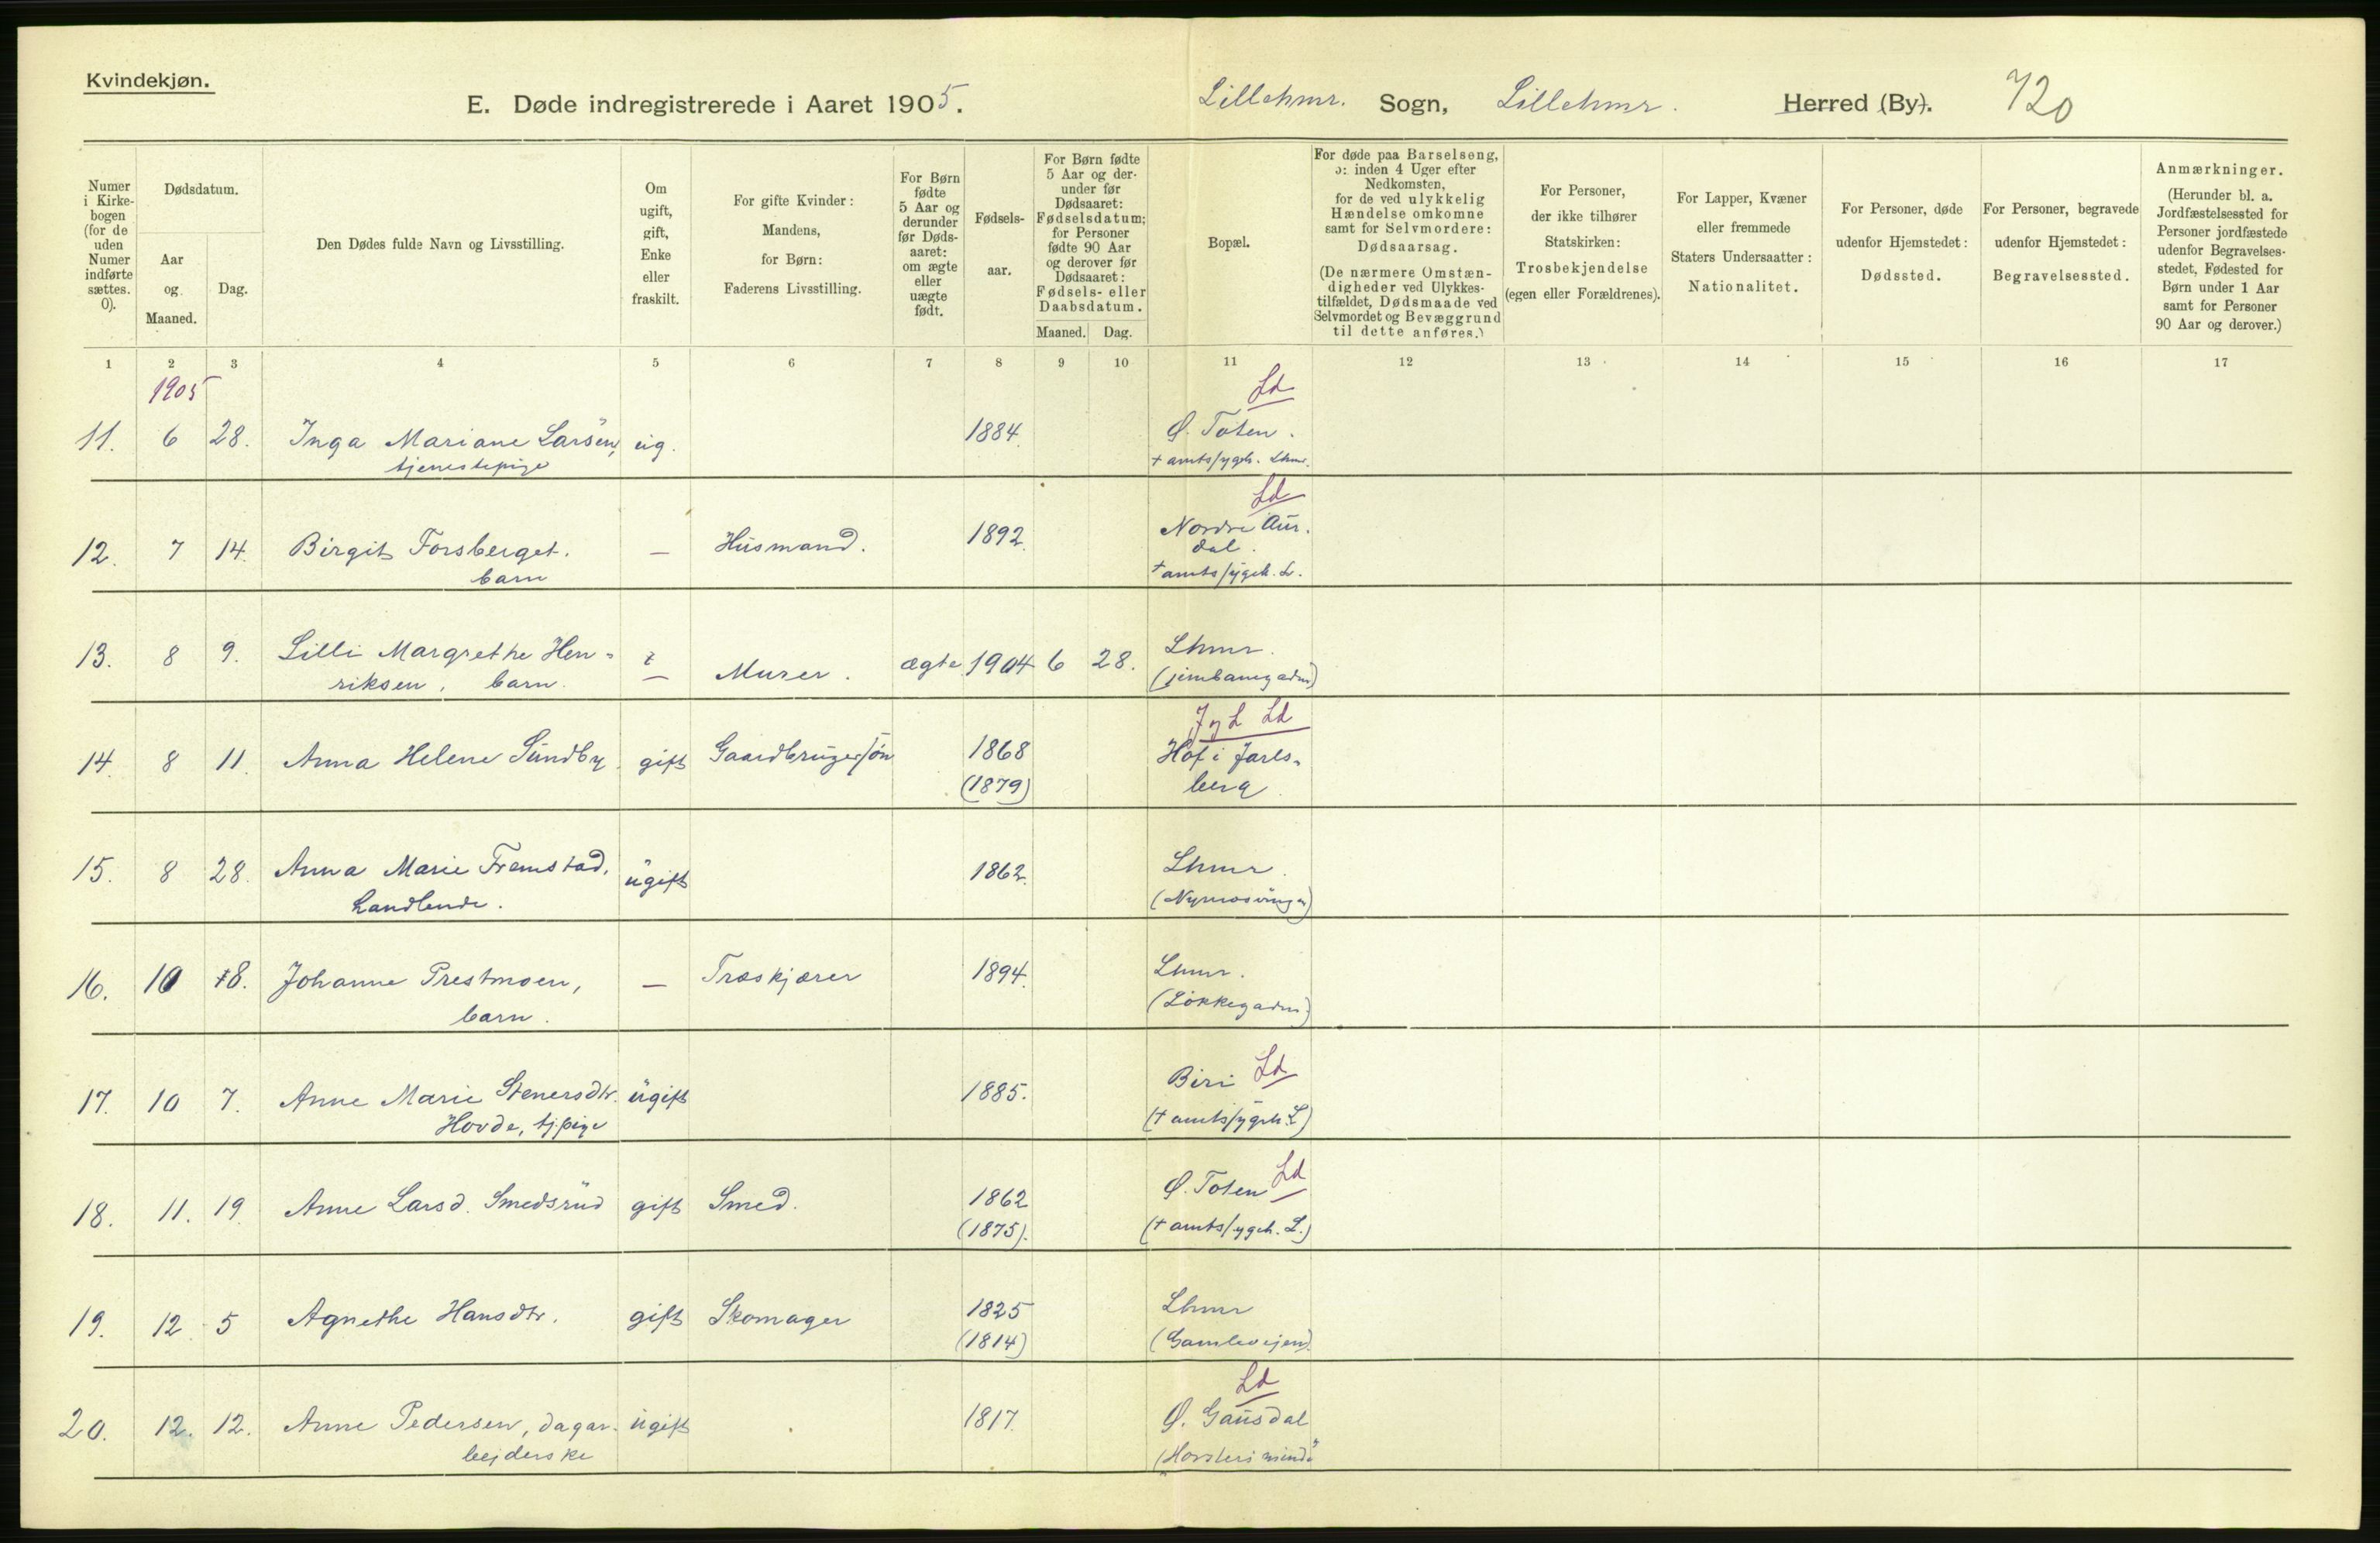 Kvindekjøn.
E. Døde indregistrerede i Aaret 1905. Lillehmr. Sogn, Lillehmr. Herred (By). 720
Numer i Kirkebogen (for de uden Numer indførte sættes. 0).
Dødsdatum.
Aar og Maaned.
Dag.
Den Dødes fulde Navn og Livsstilling.
Om ugift, gift, Enke eller fraskilt.
For gifte Kvinder: Mandens, for Børn: Faderens Livsstilling.
For Børn fødte 5 Aar og derunder før Dødsaaret: om ægte eller uægte født.
Fødselsaar.
For Børn fødte 5 Aar og derunder før Dødsaaret: Fødselsdatum; for Personer fødte 90 Aar og derover før Dødsaaret: Fødsels- eller Daabsdatum.
Maaned. Dag.
Bopæl.
For døde paa Barselseng, ɔ: inden 4 Uger efter Nedkomsten, for de ved ulykkelig Hændelse omkomne samt for Selvmordere: Dødsaarsag.
(De nærmere Omstændigheder ved Ulykkestilfældet, Dødsmaade ved Selvmordet og Bevæggrund til dette anføres.)
For Personer, der ikke tilhører Statskirken: Trosbekjendelse (egen eller Forældrenes).
For Lapper, Kvæner eller fremmede Staters Undersaatter: Nationalitet.
For Personer, døde udenfor Hjemstedet: Dødssted.
For Personer, begravede udenfor Hjemstedet: Begravelsessted.
Anmærkninger.
(Herunder bl. a. Jordfæstelsessted for Personer jordfæstede udenfor Begravelsesstedet, Fødested for Børn under 1 Aar samt for Personer 90 Aar og derover.)
1 2 3 4 5 6 7 8 9 10 11 12 13 14 15 16 17
1905 Ld
11. 6 28. Inga Mariane Larsen, ug. 1884. Ø. Toten.
tjenestepige + amtssygeh. Lhmr.
Ld
12. 7 14. Birgit Forsberget. — Husmand. 1892. Nordre Aur.
dal.
barn + amtssygeh. L.
13. 8 9. Lilli Margrethe Hen- — Murer. ægte 1904 6 28. Lhmr.
riksen, barn. (jernbanegaden)
JgL Ld
14. 8 11. Anna Helene Sundby gift Gaardbrugersøn 1868 Hof i Jarls-
(1879) berg.
15. 8 28. Anna Marie Fremstad, ugift 1862. Lhmr.
Handlende. (Nymosvingen)
16. 10 8. Johanne Prestmoen, — Træskjærer 1894. Lhmr.
barn. (Løkkegaden)
17. 10 7. Anne Marie Stenersdtr. ugift 1885. Biri Ld
Hovde, tj.pige (+ amtssygeh. L)
18. 11. 19. Anne Larsd. Smedsrud gift Smed. 1862 Ø. Toten Ld
(1875). (+ amtssygeh. L.)
19. 12 5 Agnethe Hansdtr. gift Skomager 1825 Lhmr
(1814) (Gamlevejen).
Ld
20. 12. 12. Anne Pedersen, dagar- ugift 1817. Ø. Gausdal
bejderske